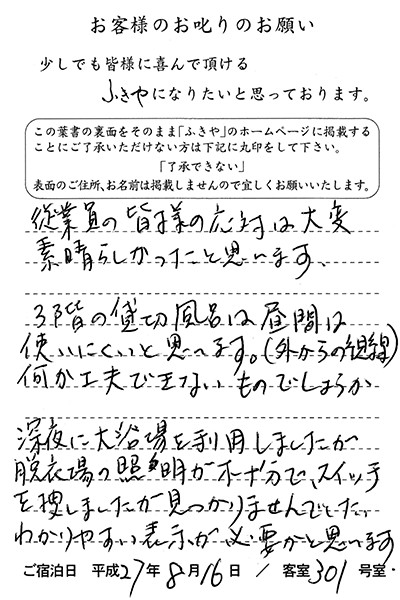 お客様のお叱りのお願い
少しでも皆様に喜んで頂ける
ふきやになりたいと思っております。
この葉書の裏面をそのまま「ふきや」のホームページに掲載する
ことにご了承いただけない方は下記に丸印をして下さい。
「了承できない」
表面のご住所、お名前は掲載しませんので宜しくお願いいたします。
従業員の皆様の応対は大変
素晴らしかったと思います、
3階の貸切風呂は昼間は
使いにくいと思います。(外からの視線)
何か工夫できないものでしょうか
深夜に大浴場を利用しましたが
脱衣場の照明が不十分で、スイッチ
を捜しましたが見つかりませんでした。
わかりやすい表示が必要かと思います
ご宿泊日 平成27年8月16日 / 客室301号室・